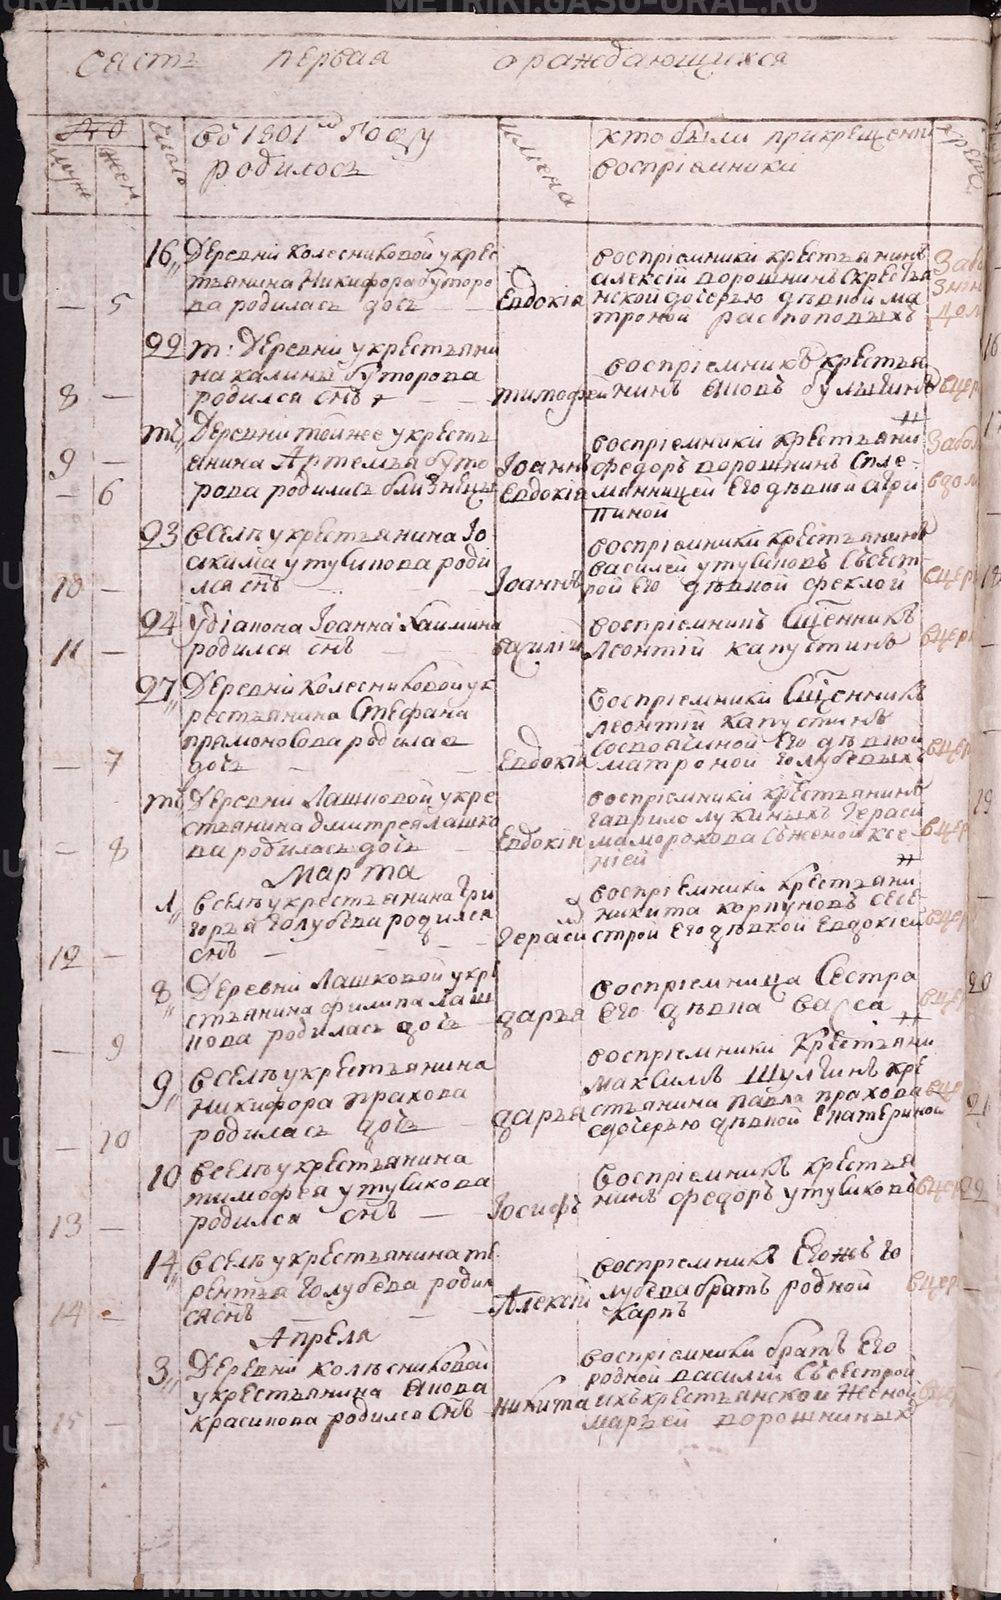 METRIKI.GASO-URAL.RU
часть первая о раждающихся
Число
въ 1801мъ Году
родилось
имена
кто были при крещении
воспріемники
муж
жен
16
Деревни Колесниковой у крес
тьянина Никифора буторо
ва родилась дочь
5
Евдокіа
воспріемники крестьянинъ
алексій ворошнинъ с крестья
нской дочерью девкой ма
троной распоповыхъ
22
т: Деревни у крестьяни
на калины буторова
родился снъ
8
тимофеи
воспріемникъ крестья
нинъ яковъ булыгинъ
вцер
тъ
Деревни тойже у кресть
янина Артемья буто
рова родились близнецы
9
6
Іоаннъ
Евдокіа
воспріемники крестьяни
федоръ ворошнинъ с пле
мянницей Его девкой агри
пиной
23
в селе у крестьянина Іо
акима утушкова роди
лся снъ
10
Іоаннъ
воспріемники крестьянинъ
василей утушковъ съ сест
рой Его девкой феклой
вцер
24
У діакона Іоанна Хаимина
родился снъ
11
василій
воспріемникъ Сщенникъ
Леонтій капустинъ
вцер
27
Деревни Колесниковой у к
рестьянина Стефана
прямоносова родилас
дочь
7
Евдокіи
воспріемники Сщенникъ
Леонтій капустинъ
матроной голубевыхъ
вцер
тъ
Деревни Лашковой у кре
стьянина дмитрея лашко
ва родилась дочь
8
Евдокіи
воспріемники крестьянинъ
гаврило лукиныхъ гераси
ма морохова съ женой ксе
ніей
вцер
Марта
1
в селе у крестьянина Гри
горья голубева родился
снъ
12
герасим
воспріемники крестьяни
никита корпуновъ с сес
строй Его девкой Евдокіей
вцер
8
Деревни Лашковой у кре
стьянина филипа лаш
кова родилась дочь
9
дарья
воспріемница Сестра
Его девка васса
вцер
9
в селе у крестьянина
Никифора прахова
родилась дочь
10
дарья
воспріемники Крестьяни
Максимъ Шулгинъ кре
стьянина павла прахова
с дочерью девкой Екатериной
вцер
10
в селе у крестьянина
тимофея утушкова
родился снъ
13
Іосифъ
Воспріемникъ крестья
нинъ федоръ утушковъ
вцер
14
в селе у крестьянина те
рентья Голубева родил
ся снъ
14
Алексій
воспріемникъ Егожъ го
лубева братъ родной
Карпъ
вцер
Апреля
3
Деревни колесниковой
у крестьянина якова
красикова родился Снъ
15
никита
воспріемники братъ Его
родной василій съ сестрой
ихъ крестьянской женой
марьей ворошниныхъ
METRIKI.GASO-URAL.RU